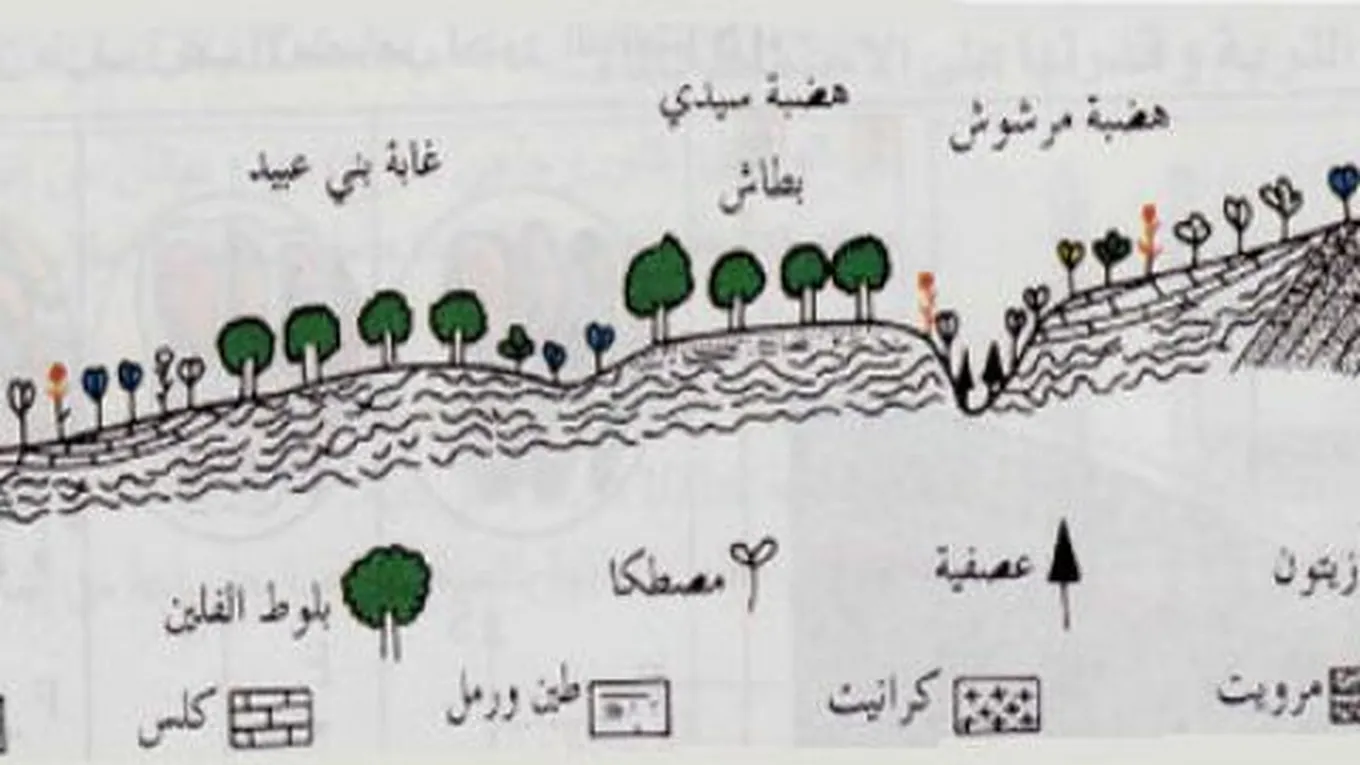 هضبة سيدي
بطاش
هضبة مرشوش
غابة بني عبيد
زيتون
عصفية
مصطكا
بلوط الفلين
مرويت
كرانيت
طين ورمل
كلس